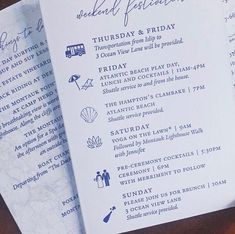 weekend festivities
THURSDAY & FRIDAY
Transportation from Islip to
3 Ocean View Lane will be provided.
FRIDAY
ATLANTIC BEACH PLAY DAY,
LUNCH AND COCKTAILS | 11AM-4PM
Shuttle service to and from the house.
THE HAMPTON'S CLAMBAKE | 7PM
ATLANTIC BEACH
Shuttle service provided.
SATURDAY
YOGA ON THE LAWN* | 9AM
Followed by Montauk Lighthouse Walk
with Jennifer
PRE-CEREMONY COCKTAILS | 5:30PM
CEREMONY | 6PM
WITH MERRIMENT TO FOLLOW
SUNDAY
PLEASE JOIN US FOR BRUNCH | 10AM
3 OCEAN VIEW LANE
Shuttle service provided.
things to
DAY SAILING
SUP AND SUP
BEACH RIDING AT DEE
THE MONTAUK POINT
CAMP HERO
BOAT CHAR
Departing from "The Do